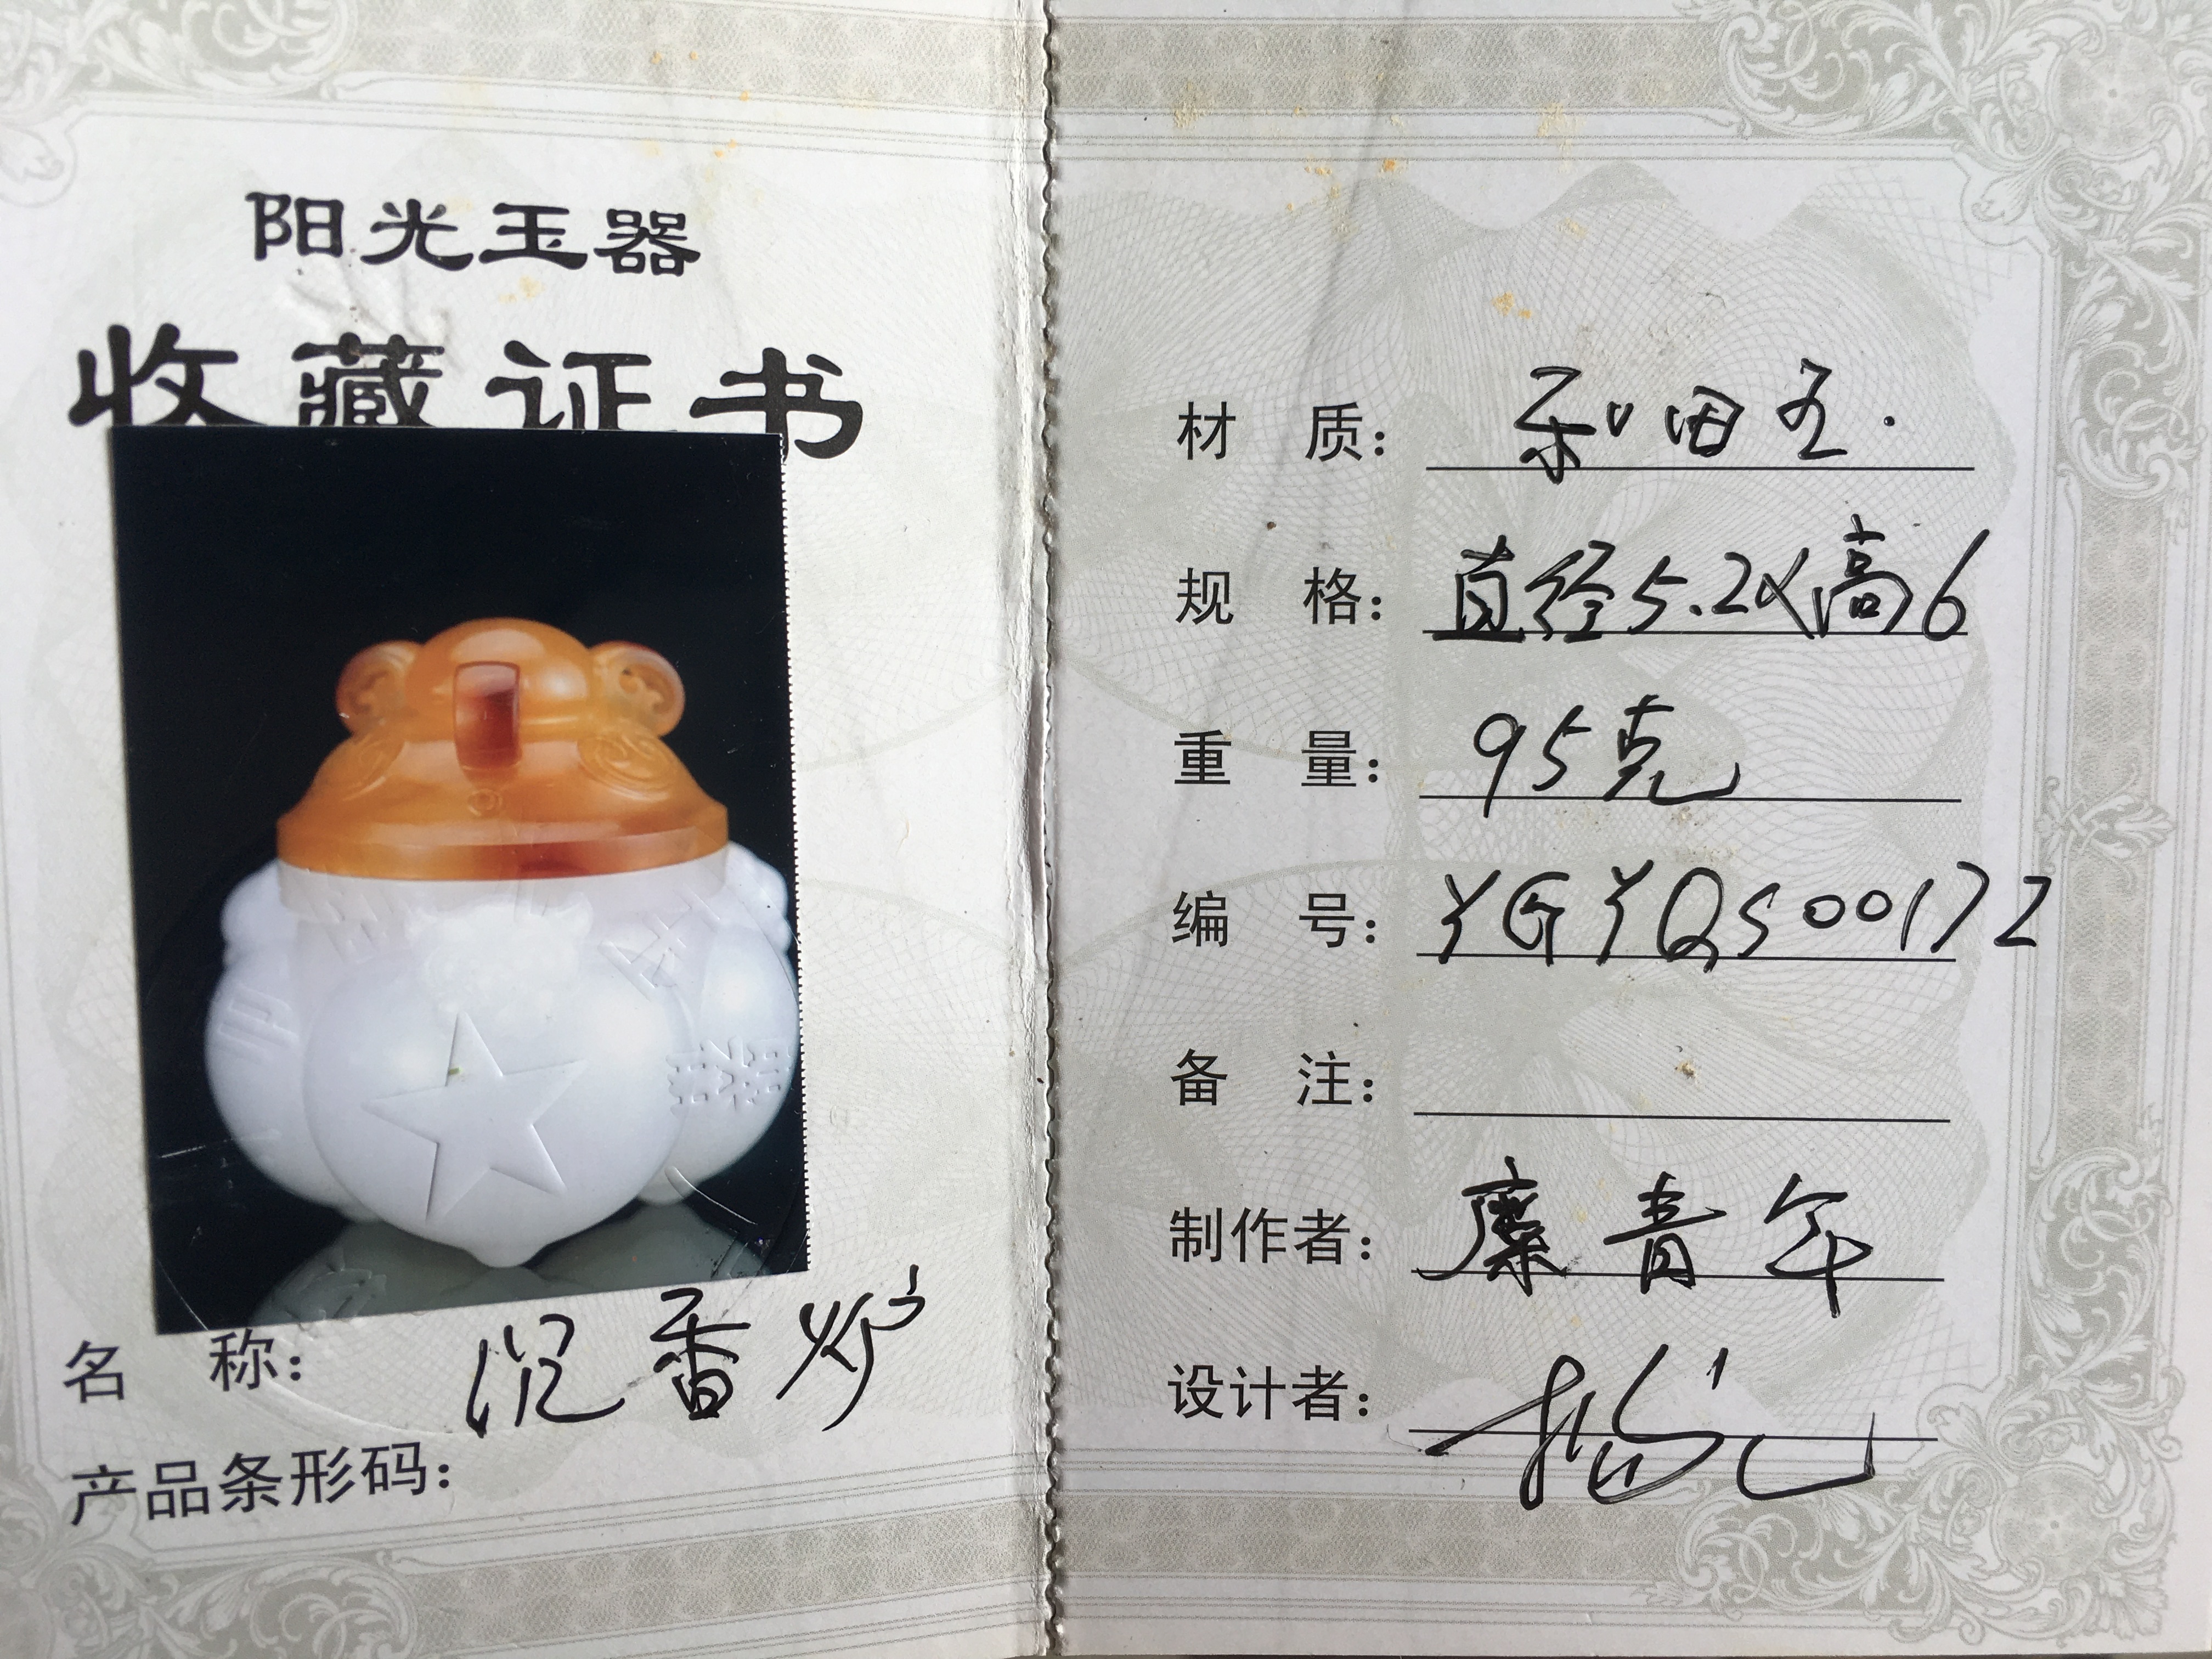 阳光玉器
收藏证书
名 称：沉香炉
产品条形码：
材 质：和田玉.
规 格：直径5.2×高6
重 量：95克
编 号：YGYQS00172
备 注：
制作者：糜青年
设计者：